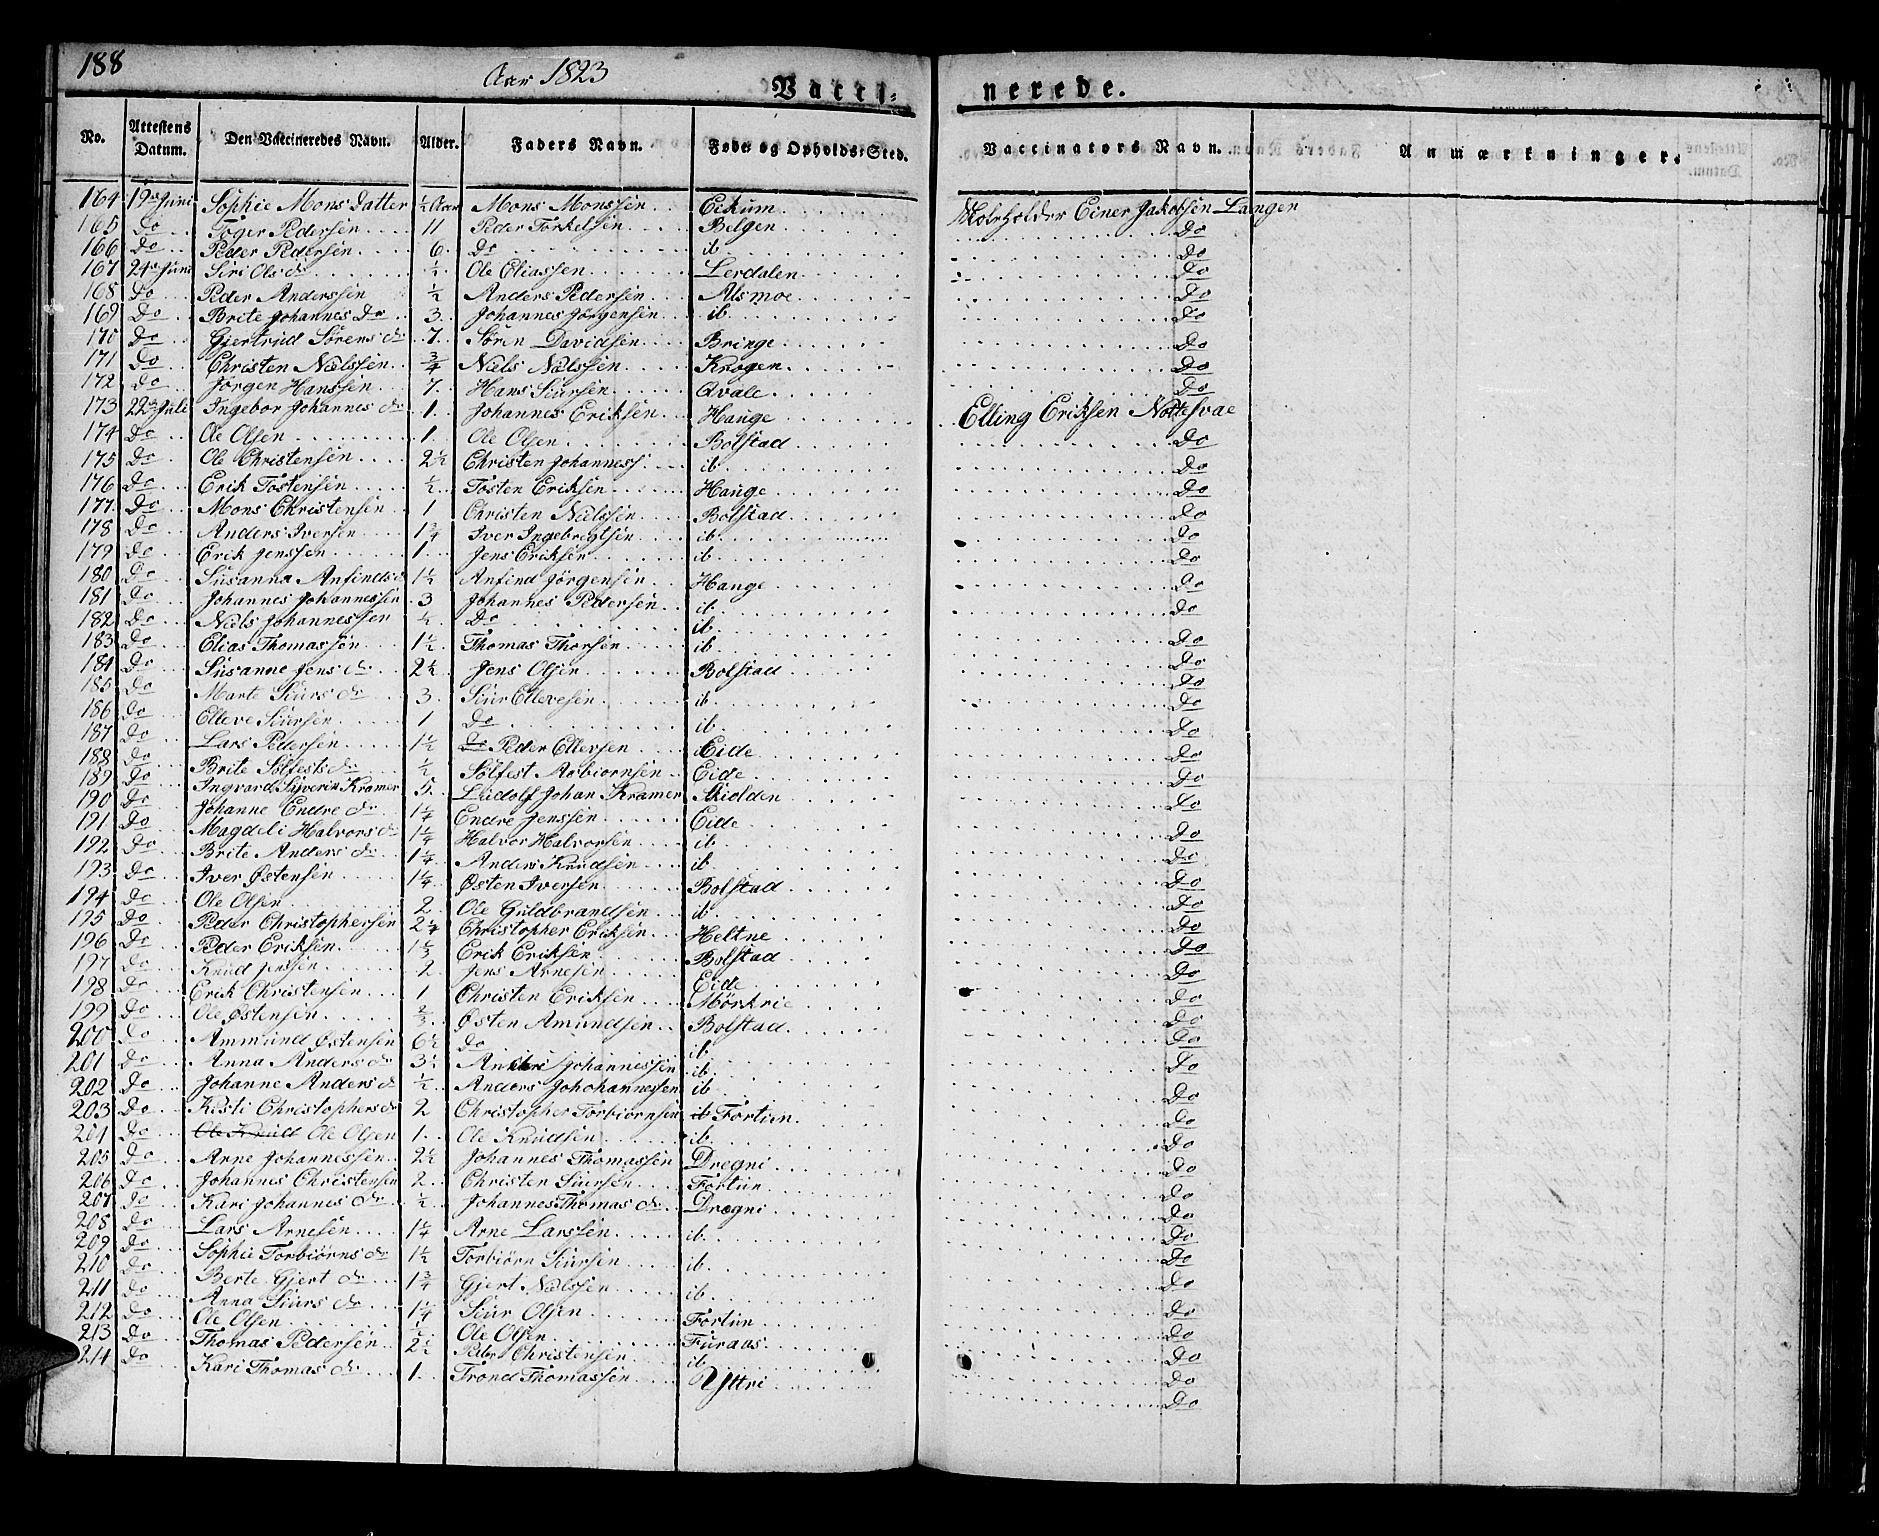 188
Aar 1823
Vacci-
nerede.
No. Attestens Datum. Den Vaccineredes Navn. Alder. Faders Navn. Føde- og Opholds-Sted. Vaccinators Navn. Anmærkninger.
164 19de Juni Sophie Mons Datter ½ Aar Mons Monssen Eikum Einer Jakobsen Langen
165 Do Toger Pedersen 11 Peder Torkelsen Bolgen Do
166 Do Peder Pedersen 6 Do ib Do
167 24de Juni Siri Ols dr ½ Ole Eliassen Lerdalen Do
168 Do Peder Anderssen ½ Anders Pedersen Alsmoe Do
169 Do Brite Johannes Dr 3 Johannes Jørgensen ib Do
170 Do Gjertrud Sørens dr 7 Søren Davidsen Bringe Do
171 Do Christen Nielssen ¾ Niels Nielssen Krogen Do
172 Do Jørgen Hanssen 7 Hans Siursen Qvale Do
173 22de Juli Ingebor Johannes dr 1 Johannes Eriksen Hauge Elling Eriksen Nottesvae
174 Do Ole Olsen 1 Ole Olsen Bolstad Do
175 Do Ole Christensen 2½ Christen Johanness ib Do
176 Do Erik Tostensen ½ Tosten Eriksen Hauge Do
177 Do Mons Christensen 1 Christen Nielssen Bolstad Do
178 Do Anders Iversen 1¾ Iver Ingebregtsen ib Do
179 Do Erik Jenssen 1 Jens Eriksen ib Do
180 Do Susanna Anfinds d 1½ Anfind Jørgensen Hauge Do
181 Do Johannes Johannessen 3 Johannes Pedersen ib Do
182 Do Niels Johannessen ½ Do ib
183 Do Elias Thomassen 1½ Thomas Thorsen ib Do
184 Do Susanne Jens dr 2½ Jens Olsen Bolstad Do
185 Do Marte Siurs dr 3 Siur Ellevesen ib Do
186 Do Elleve Siursen 1 Do ib Do
187 Do Lars Pedersen 1½ Do Peder Ellevsen Eide Do
188 Do Brite Sølfests dr ½ Sølfest Asbiornsen Eide Do
189 Do Ingvard Siverin Kramer 5 Ludolf Johan Kramer Skiolden Do
190 Do Johanne Endre dr 1¼ Endre Jenssen Eide Do
191 Do Magdeli Halvors dr 1¼ Halvor Halvorsen ib Do
192 Do Brite Anders dr 1¼ Anders Knudsen ib Do
193 Do Iver Østensen 1¼ Østen Iversen Bolstad Do
194 Do Ole Olsen 2 Ole Guldbrandsen ib Do
195 Do Peder Christophersen 2¼ Christopher Eriksen Heltne Do
196 Do Peder Eriksen 1⅓ Erik Eriksen Bolstad Do
197 Do Knud Jenssen 2 Jens Arnesen Eide Do
198 Do Erik Christensen 1 Christen Eriksen Mørkrie Do
199 Do Ole Østensen ⅔ Østen Amundsen Bolstad Do
200 Do Ammund Østensen 6½ Do ib Do
201 Do Anna Anders dr 3½ Anders Johannessen ib Do
202 Do Johanne Anders d ½ Anders Johohannessen ib Do
203 Do Kisti Christophers dr 2 Christopher Torbiørnsen ib Fortun Do
204 Do Ole Knudt Ole Olsen 1 Ole Knudsen ib Do
205 Do Arne Johannessen 2½ Johannes Thomassen Dregni Do
206 Do Johannes Christensen 2 Christen Siursen Fortun Do
207 Do Kari Johannes dr ½ Johannes Thomas dr Drægni Do
208 Do Lars Arnesen 1¼ Arne Larssen ib Do
209 Do Sophie Torbiørns dr 1½ Torbiørn Siursen ib Do
210 Do Berte Gjert dr 1¾ Gjert Nielssen ib Do
211 Do Anna Siurs dr 1¼ Siur Olsen Fortun Do
212 Do Ole Olsen ½ Ole Olsen Furaas Do
213 Do Thomas Pedersen 2½ Peder Christensen ib Do
214 Do Kari Thomas dr 1 Trond Thomassen Yttri Do
Do